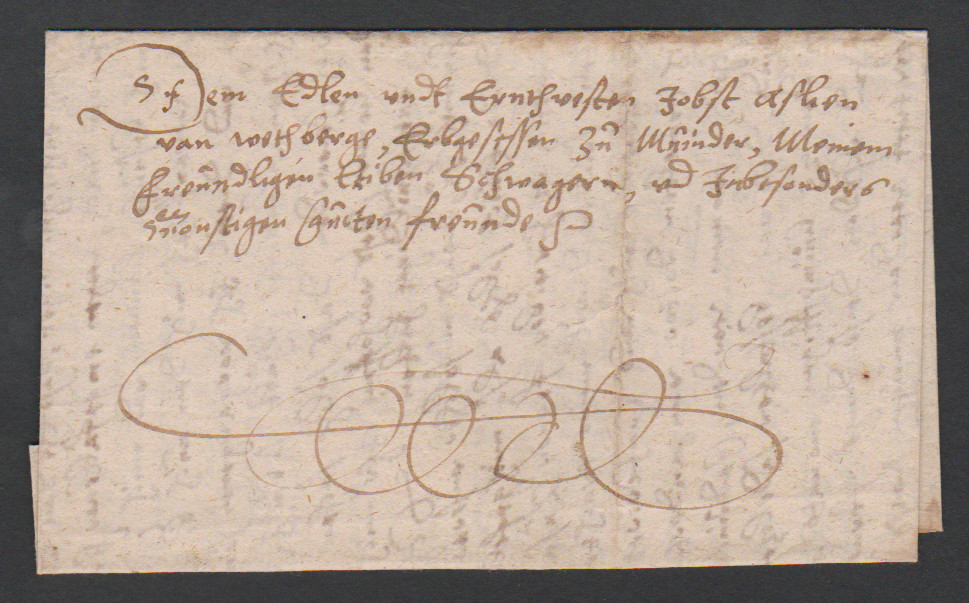 Dem Edlen undt Ernthvesten Jobst Aschen
van Wethberge, Erbgesessen zu Münder, Meinem
freundligen lieben Schwagern, vd Inbesonders
günstigen guten freunde